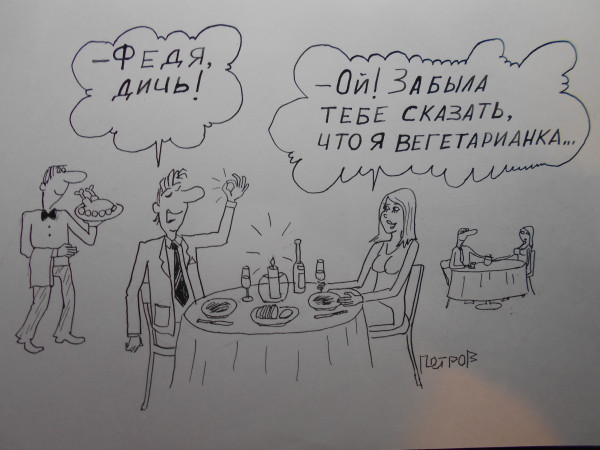 - ФЕДЯ,
ДИЧЬ!
- ОЙ! ЗАБЫЛА
ТЕБЕ СКАЗАТЬ,
ЧТО Я ВЕГЕТАРИАНКА...
ПЕТРОВ